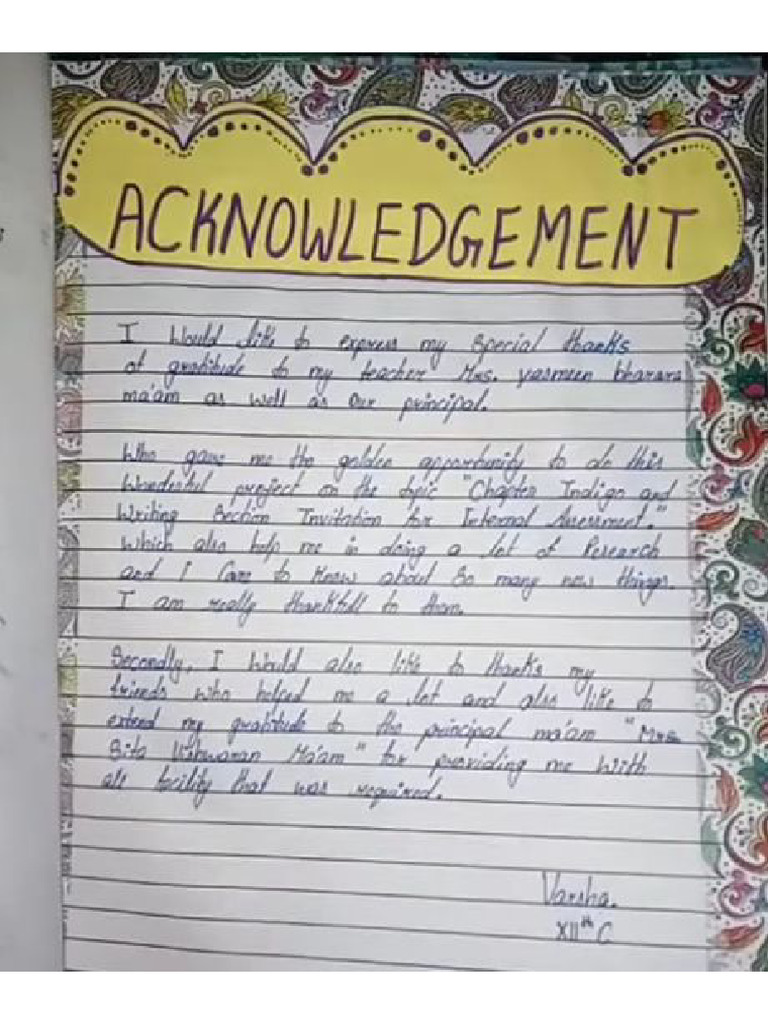 ACKNOWLEDGEMENT
I Would like to express my special thanks
of gratitude to my teacher Mrs. yasmeen bharara
ma'am as well as our principal.
Who gave me the golden opportunity to do this
Wonderful project on the topic "Chapter Indigo and
Writing Section Invitation for Internal Assessment."
Which also help me in doing a lot of Research
and I Came to Know about So many new things.
I am really thankfull to them.
Secondly, I Would also like to thanks my
friends who helped me a lot and also like to
extend my gratitude to the principal ma'am "Mrs.
Sita Ma'am" for providing me with
all facility that was required.
Varsha.
XIIth C